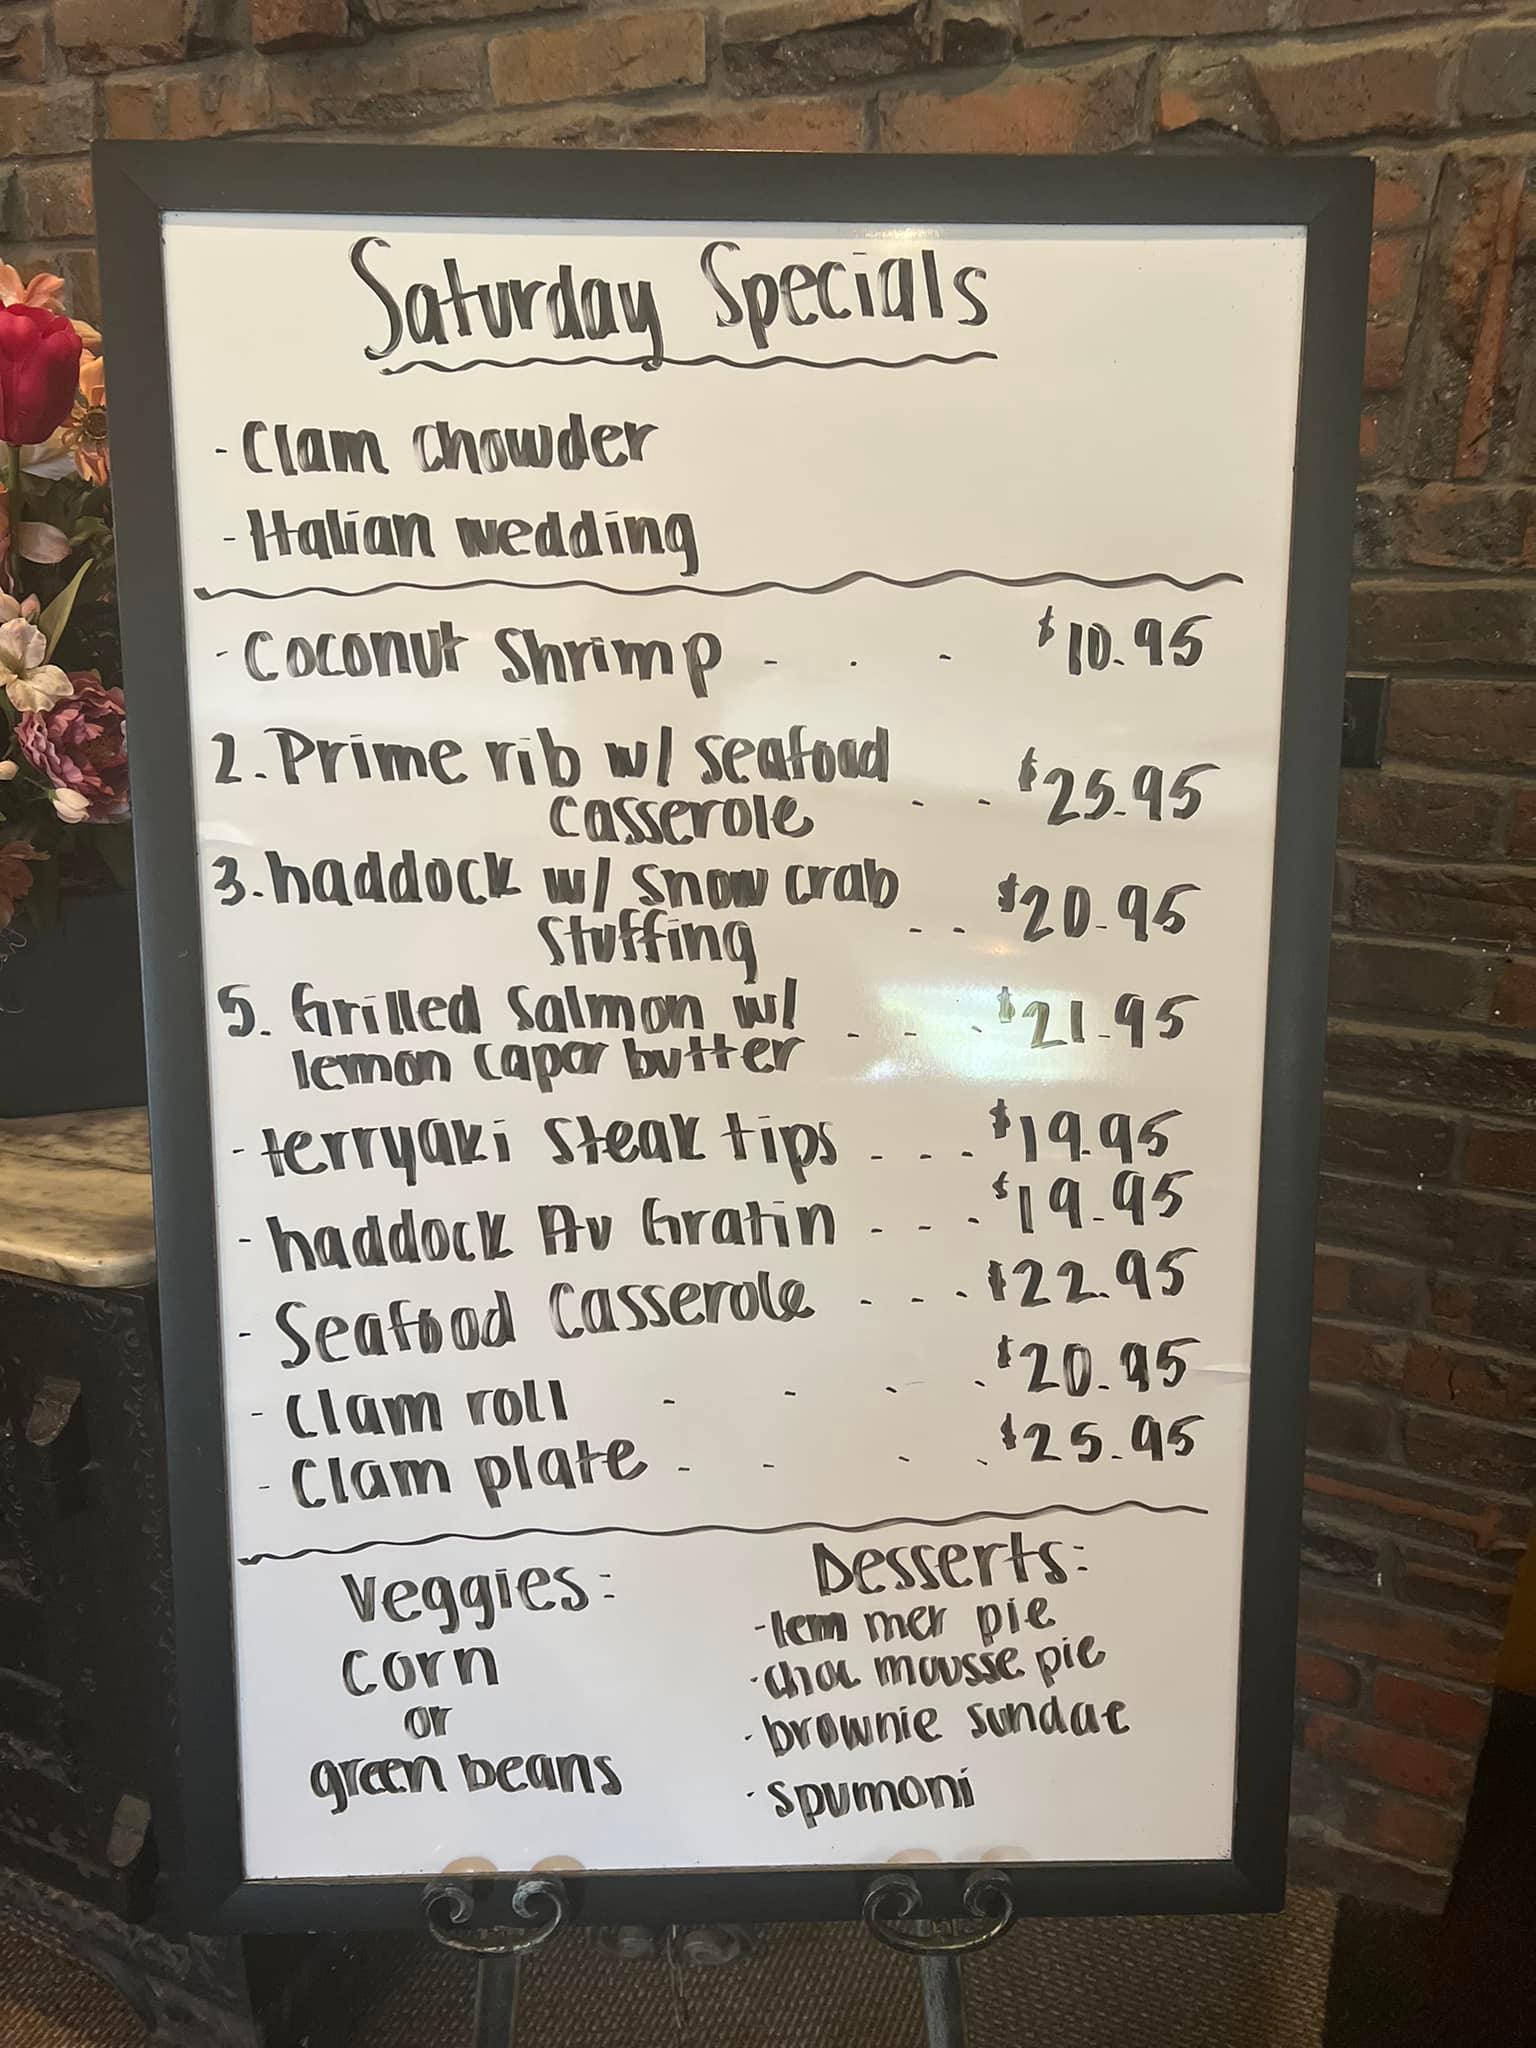 Saturday Specials
- Clam Chowder
- Italian wedding
- Coconut Shrimp - . - $10.95
2. Prime rib w/ seafood
casserole - - $25.95
3. haddock w/ snow crab
stuffing - - $20.95
5. Grilled Salmon w/
lemon capor butter - - - $21.95
- terryaki steak tips - - - $19.95
- haddock Au Gratin - - - $19.95
- Seafood Casserole - - - $22.95
- Clam roll - - - - $20.95
- Clam plate - - - - $25.95
Veggies:
Corn
or
green beans
Desserts:
- lem mer pie
- choc mousse pie
- brownie sundae
- spumoni